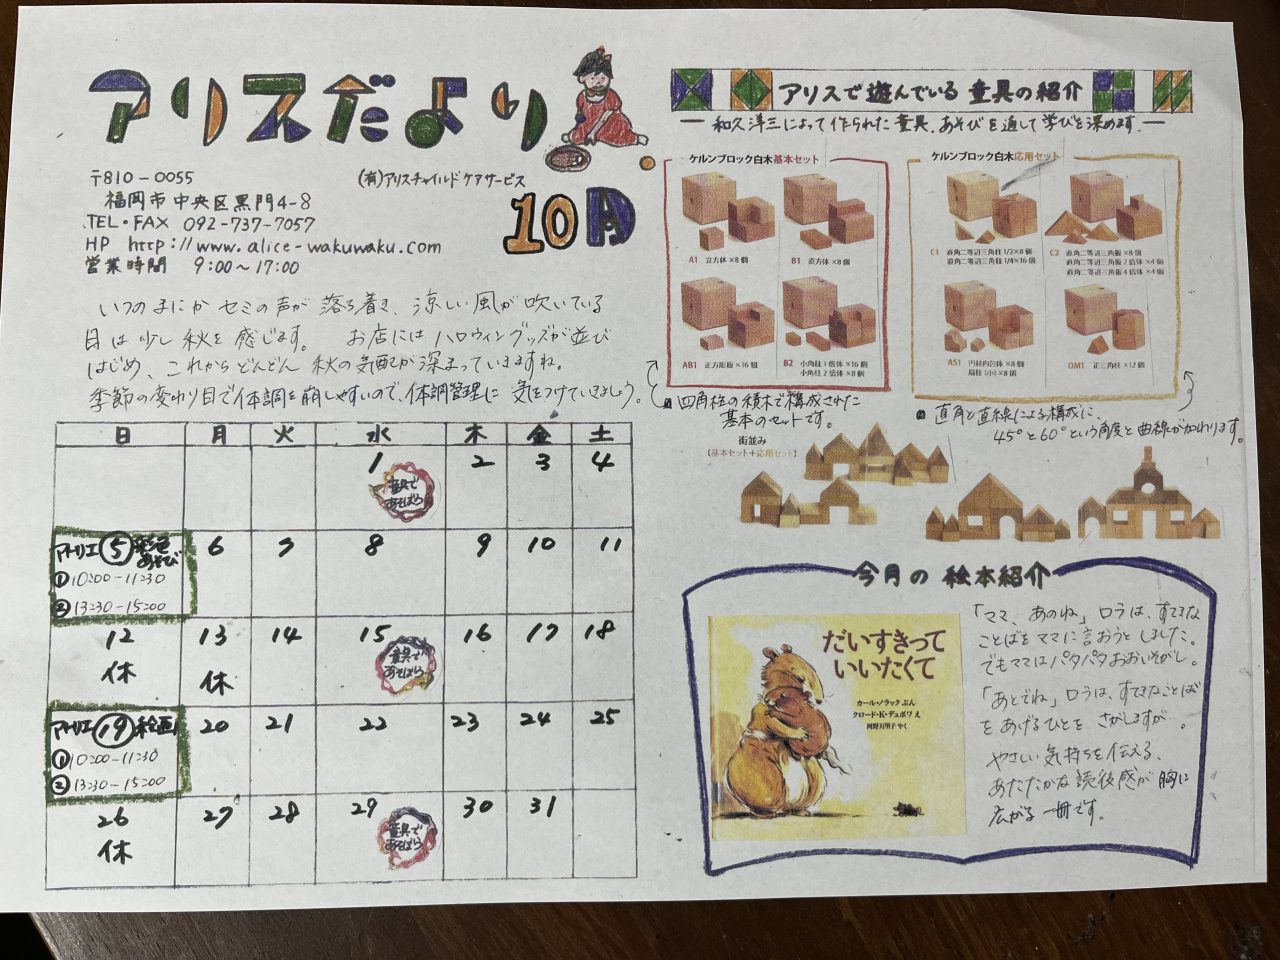 アリスだより
10月
〒810-0055
(有)アリスチャイルドケアサービス
福岡市中央区黒門4-8
TEL・FAX 092-737-7057
HP http://www.alice-wakuwaku.com
営業時間 9:00〜17:00
いつのまにかセミの声が落ち着き、涼しい風が吹いている
日は少し秋を感じます。 お店にはハロウィングッズが並び
はじめ、これからどんどん秋の気配が深まっていきますね。
季節の変わり目で体調を崩しやすいので、体調管理に気をつけていきましょう。
日 月 火 水 木 金 土
1 2 3 4
童具で
あそぼう
アトリエ 5 彩色あそび 6 7 8 9 10 11
①10:00-11:30
②13:30-15:00
12 13 14 15 16 17 18
休 休
童具で
あそぼう
アトリエ 19 絵画 20 21 22 23 24 25
①10:00-11:30
②13:30-15:00
26 27 28 29 30 31
休
童具で
あそぼう
アリスで遊んでいる童具の紹介
―和久洋三によって作られた童具、あそびを通して学びを深めます。―
ケルンブロック白木基本セット
A1 立方体×8個
B1 直方体×8個
AB1 正方形板×16個
B2 小角柱1倍体×16個
小角柱2倍体×8個
四角柱の積木で構成された
基本のセットです。
ケルンブロック白木応用セット
C1 直角二等辺三角柱1/2×8個
直角二等辺三角柱1/4×16個
C2 直角二等辺三角板×8個
直角二等辺三角板2倍体×4個
直角二等辺三角板4倍体×4個
AS1 円柱内包体×8個
扇柱(小)×8個
OM1 正三角柱×12個
直角と直線による構成に、
45°と60°という角度と曲線が加わります。
街並み
(基本セット+応用セット)
今月の絵本紹介
だいすきって
いいたくて
カール・ノラック ぶん
クロード・K・デュボワ え
河野万里子 やく
「ママ、あのね」ロラは、すてきな
ことばをママに言おうとしました。
でもママはパタパタおおいそがし。
「あとでね」ロラは、すてきなことば
をあげるひとをさがしますが。
やさしい気持ちを伝える、
あたたかな読後感が胸に
広がる一冊です。